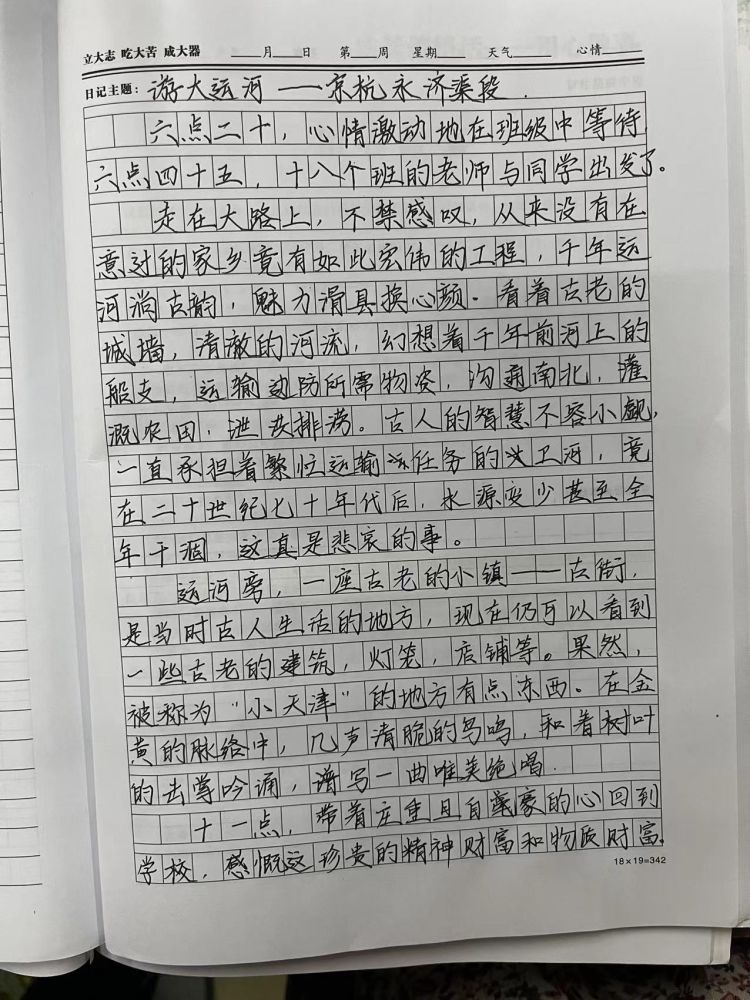 立大志 吃大苦 成大器 ____月____日 第____周 星期____ 天气____ 心情____
日记主题：游大运河——京杭永济渠段.
六点二十，心情激动地在班级中等待
六点四十五，十八个班的老师与同学出发了。
走在大路上，不禁感叹，从来没有在
意过的家乡竟有如此宏伟的工程，千年运
河淌古韵，魅力滑县换心颜.看着古老的
城墙，清澈的河流，幻想着千年前河上的
船支，运输边防所需物资，沟通南北，灌
溉农田，泄洪排涝。古人的智慧不容小觑，
一直承担着繁忙运输任务的卫河，竟
在二十世纪七十年代后，水源变少甚至全
年干涸，这真是悲哀的事。
运河旁，一座古老的小镇——古街，
是当时古人生活的地方，现在仍可以看到
一些古老的建筑，灯笼，店铺等。果然，
被称为“小天津”的地方有点东西。在金
黄的脉络中，几声清脆的鸟鸣，和着树叶
的吟诵，谱写一曲唯美绝唱.
十一点，带着庄重且自豪的心回到
学校，感慨这珍贵的精神财富和物质财富。
18×19=342